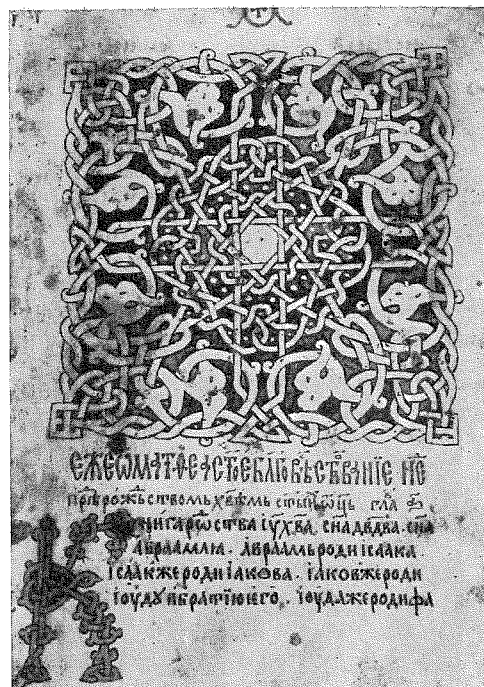 ЕЖЕ Ѿ МАТѲЕА СТ҃Ое БЛГ҃ОВѢСТВОВАНІЕ
рожьствомь хв҃ѣмь ст҃ыⷯ ѡ҃ць гла
КНИГА РѠСТВА ІУ҃ ХВ҃А, СН҃А ДВ҃ДВА. СН҃А
АВРААМЛЯ. АВРААМЬ РОДИ ІСААКА.
ІСААКЖЕ РОДИ ІАКОВА. ІАКОВЖЕ РОДИ
ІОУДУ И БРАТИЮ ЕГО. ІОУДА ЖЕ РОДИ ФА